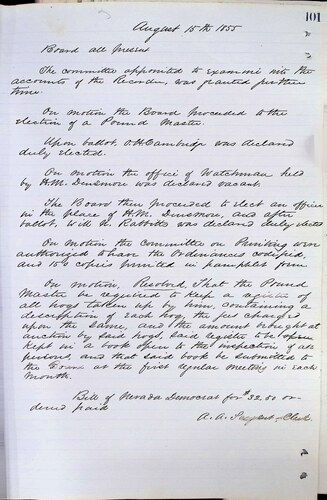 101
August 15th 1855
Board all present
The committee appointed to examine into the
accounts of the Recorder, was granted further
time.
On motion the Board proceeded to the
election of a Pound Master.
Upon ballot, O.H. Cambridge was declared
duly elected.
On motion the office of Watchman held
by H.M. Dinsmore was declared vacant.
The Board then proceeded to elect an officer
in the place of H.M. Dinsmore, and after
ballot, Will N. Rabbitts was declared duly elected
On motion the Committee on Printing were
authorized to have the Ordinances codified,
and 150 copies printed in pamphlet form
On motion, Resolved, That the Pound
Master be required to keep a register of
all hogs taken up by him, containing a
description of each hog, the fees charged
upon the same, and the amount brought at
auction by said hogs, said register to be
kept in a book open to the inspection of all
persons, and that said book be submitted to
the Board at the first regular meeting in each
Month.
Bill of Nevada Democrat for $32.50 or-
dered paid
A. A. Sargent Clerk